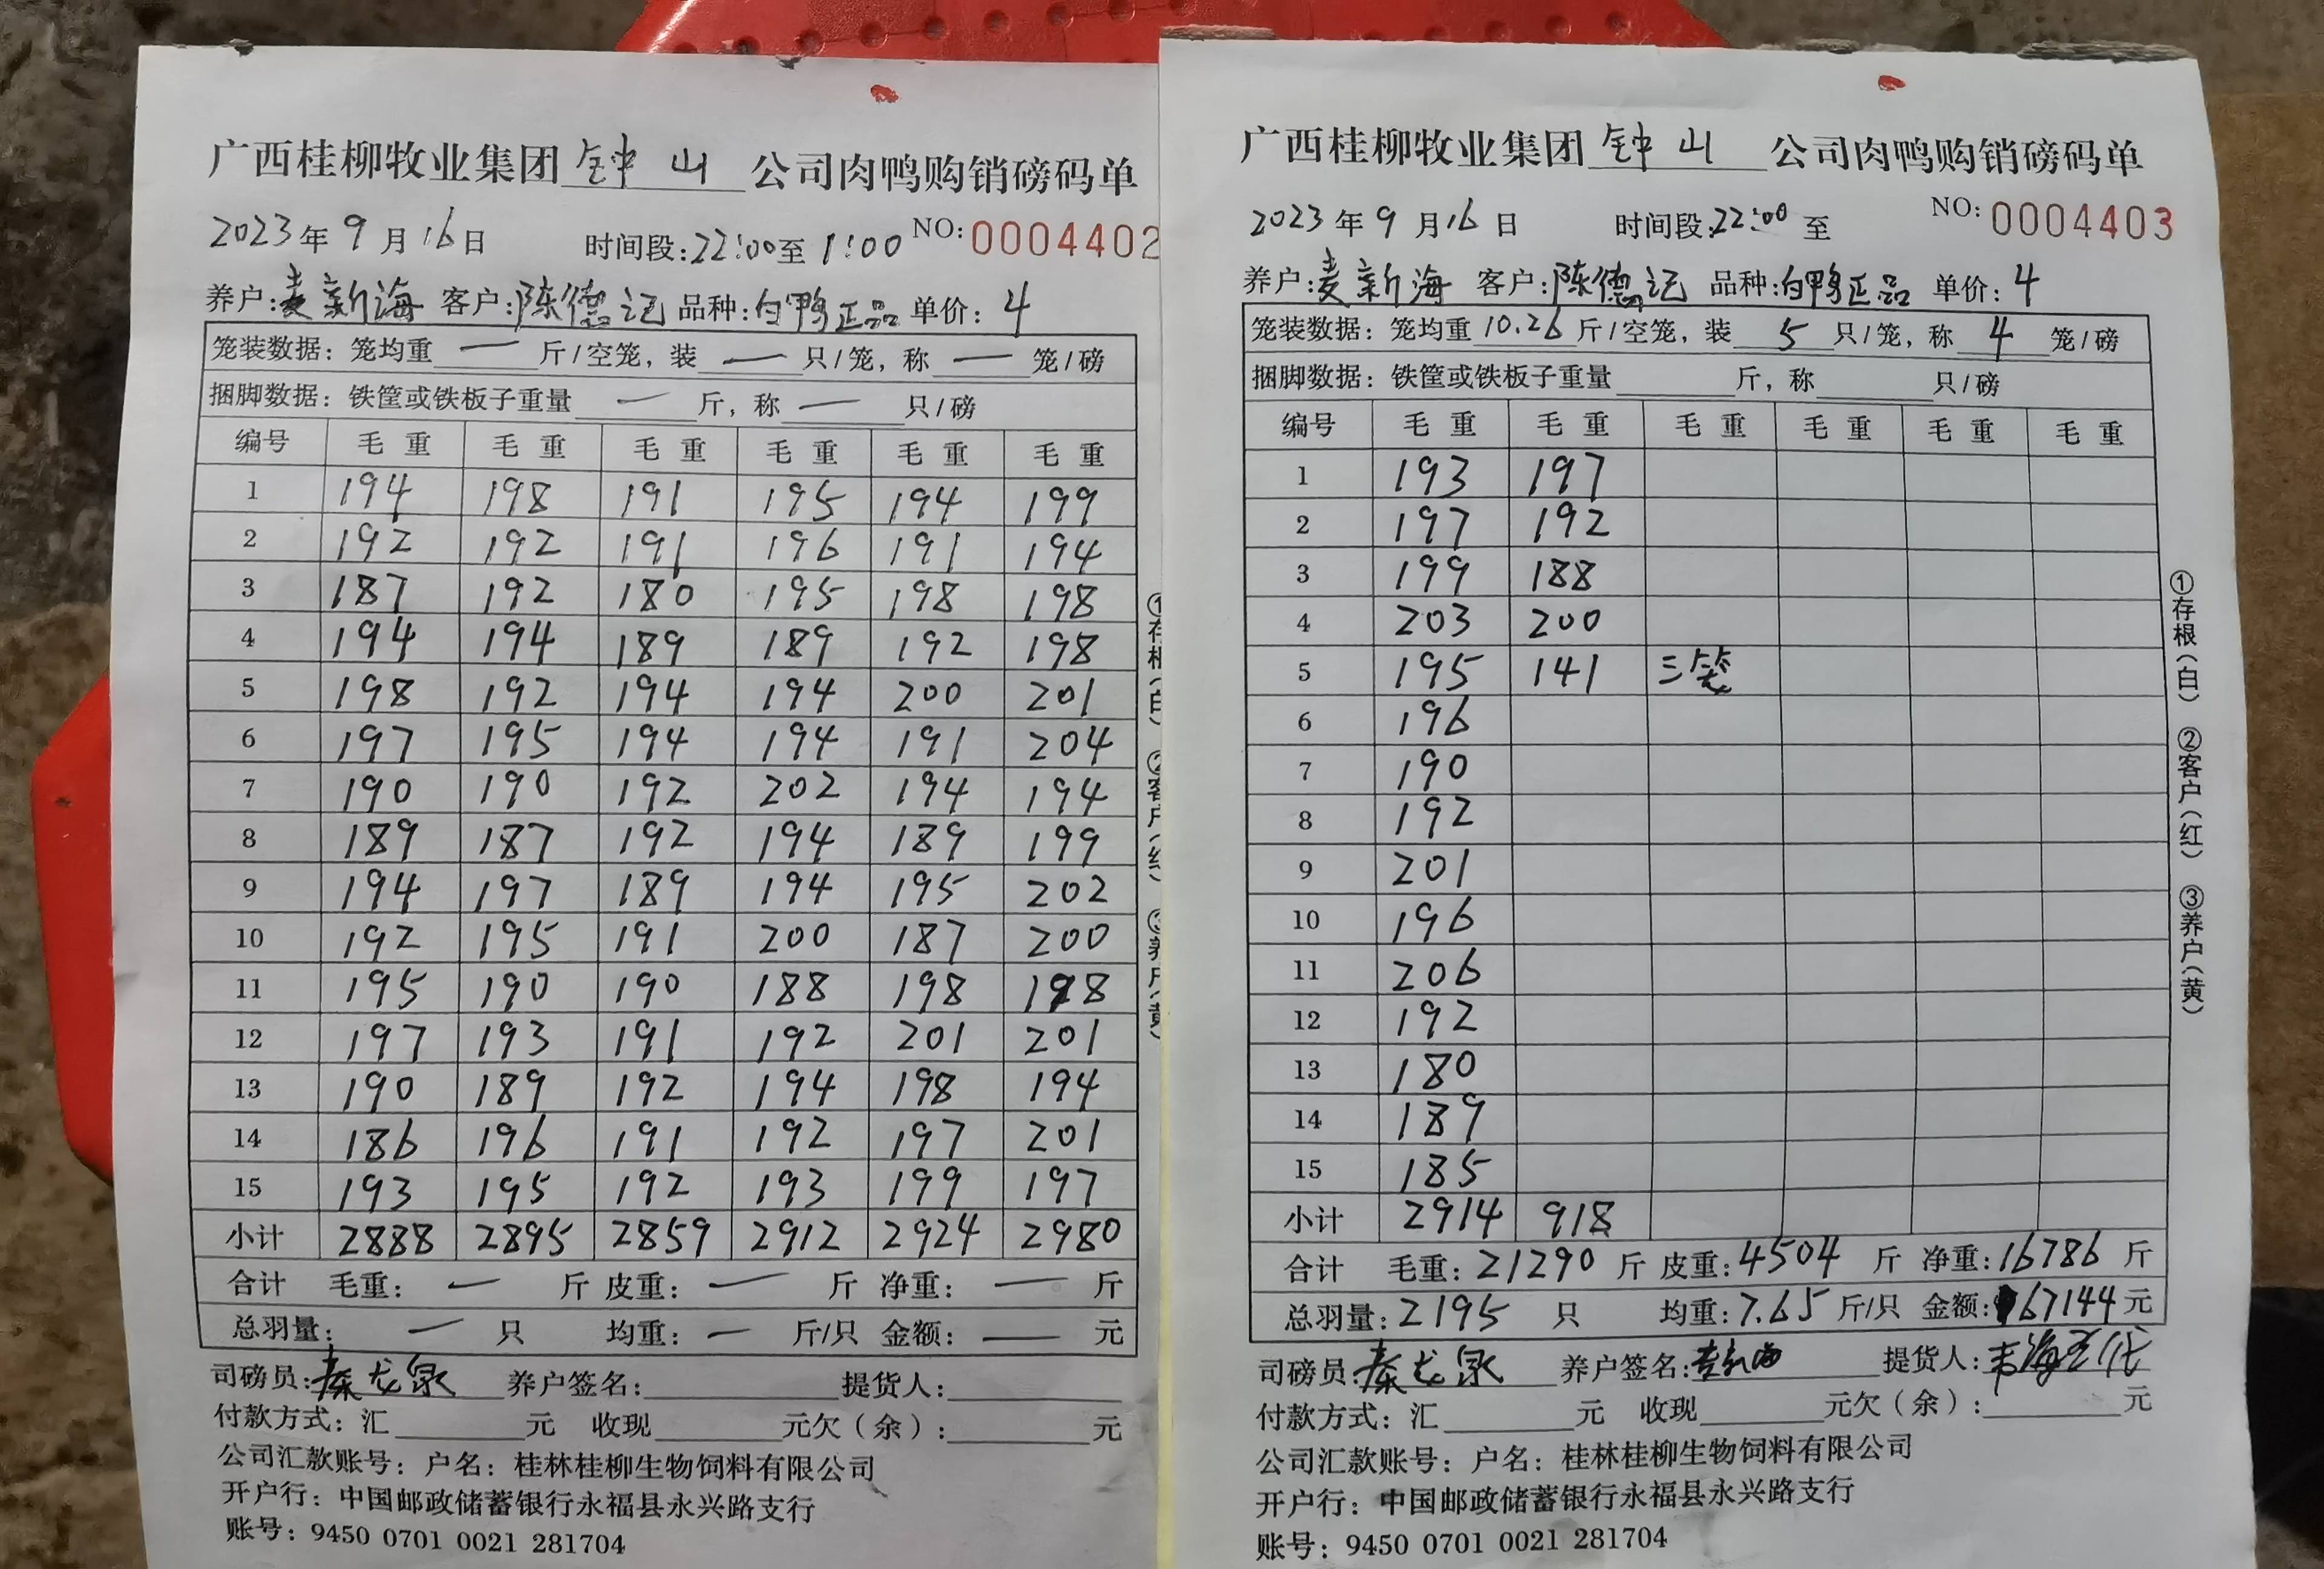 广西桂柳牧业集团钟山公司肉鸭购销磅码单
2023年9月16日 时间段:22:00至1:00 NO:0004402
养户:麦新海 客户:陈德记 品种:白鸭正品 单价:4
笼装数据:笼均重 — 斤/空笼,装 — 只/笼,称 — 笼/磅
捆脚数据:铁筐或铁板子重量 — 斤,称 — 只/磅
编号 毛重 毛重 毛重 毛重 毛重 毛重
1 194 198 191 195 194 199
2 192 192 191 196 191 194
3 187 192 180 195 198 198
4 194 194 189 189 192 198
5 198 192 194 194 200 201
6 197 195 194 194 191 204
7 190 190 192 202 194 194
8 189 187 192 194 189 199
9 194 197 189 194 195 202
10 192 195 191 200 187 200
11 195 190 190 188 198 198
12 197 193 191 192 201 201
13 190 189 192 194 198 194
14 186 196 191 192 197 201
15 193 195 192 193 199 197
小计 2888 2895 2859 2912 2924 2980
合计 毛重: — 斤 皮重: — 斤 净重: — 斤
总羽量: — 只 均重: — 斤/只 金额: — 元
司磅员:秦龙泉 养户签名: 提货人:
付款方式:汇 元 收现 元欠(余): 元
公司汇款账号:户名:桂林桂柳生物饲料有限公司
开户行:中国邮政储蓄银行永福县永兴路支行
账号:9450 0701 0021 281704
广西桂柳牧业集团钟山公司肉鸭购销磅码单
2023年9月16日 时间段:22:00至 NO:0004403
养户:麦新海 客户:陈德记 品种:白鸭正品 单价:4
笼装数据:笼均重10.26斤/空笼,装5只/笼,称4笼/磅
捆脚数据:铁筐或铁板子重量 斤,称 只/磅
编号 毛重 毛重 毛重 毛重 毛重 毛重
1 193 197
2 197 192
3 199 188
4 203 200
5 195 141 三笼
6 196
7 190
8 192
9 201
10 196
11 206
12 192
13 180
14 189
15 185
小计 2914 918
合计 毛重:21290斤 皮重:4504斤 净重:16786斤
总羽量:2195只 均重:7.65斤/只 金额:67144元
司磅员:秦龙泉 养户签名: 提货人:
付款方式:汇 元 收现 元欠(余): 元
公司汇款账号:户名:桂林桂柳生物饲料有限公司
开户行:中国邮政储蓄银行永福县永兴路支行
账号:9450 0701 0021 281704
①存根(白) ②客户(红) ③养户(黄)